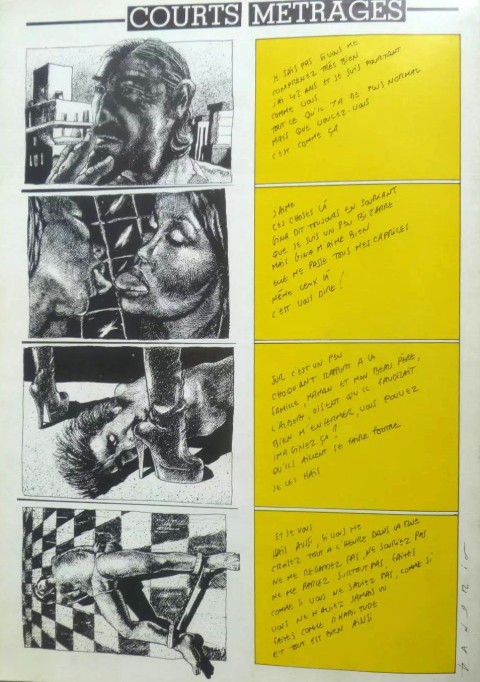 COURTS METRAGES
JE SAIS PAS SI VOUS ME
COMPRENEZ TRÈS BIEN
J'AI 42 ANS ET JE SUIS POURTANT
COMME VOUS
TOUT CE QU'IL Y A DE PLUS NORMAL
MAIS QUE VOULEZ-VOUS
C'EST COMME ÇA
J'AIME
CES CHOSES LÀ
GINA DIT TOUJOURS EN SOURIANT
QUE JE SUIS UN PEU BIZARRE
MAIS GINA M'AIME BIEN
ELLE ME PASSE TOUS MES CAPRICES
MÊME CEUX LÀ
C'EST VOUS DIRE !
SUR C'EST UN PEU
CHOQUANT RAPPORT A LA
FAMILLE, MAMAN ET MON BEAU PÈRE,
L'ALBERT, DISENT QU'IL FAUDRAIT
BIEN M'ENFERMER, VOUS POUVEZ
IMAGINEZ ÇA !!
QU'ILS AILLENT SE FAIRE FOUTRE
JE LES HAIS
ET JE VOUS
HAIS AUSSI, SI VOUS ME
CROISEZ TOUT A L'HEURE DANS LA RUE
NE ME REGARDEZ PAS, NE SOURIEZ PAS
NE ME PARLEZ SURTOUT PAS, FAITES
COMME SI VOUS NE SAVIEZ PAS, COMME SI
VOUS NE M'AVIEZ JAMAIS VU
FAITES COMME D'HABITUDE
ET TOUT EST BIEN AINSI